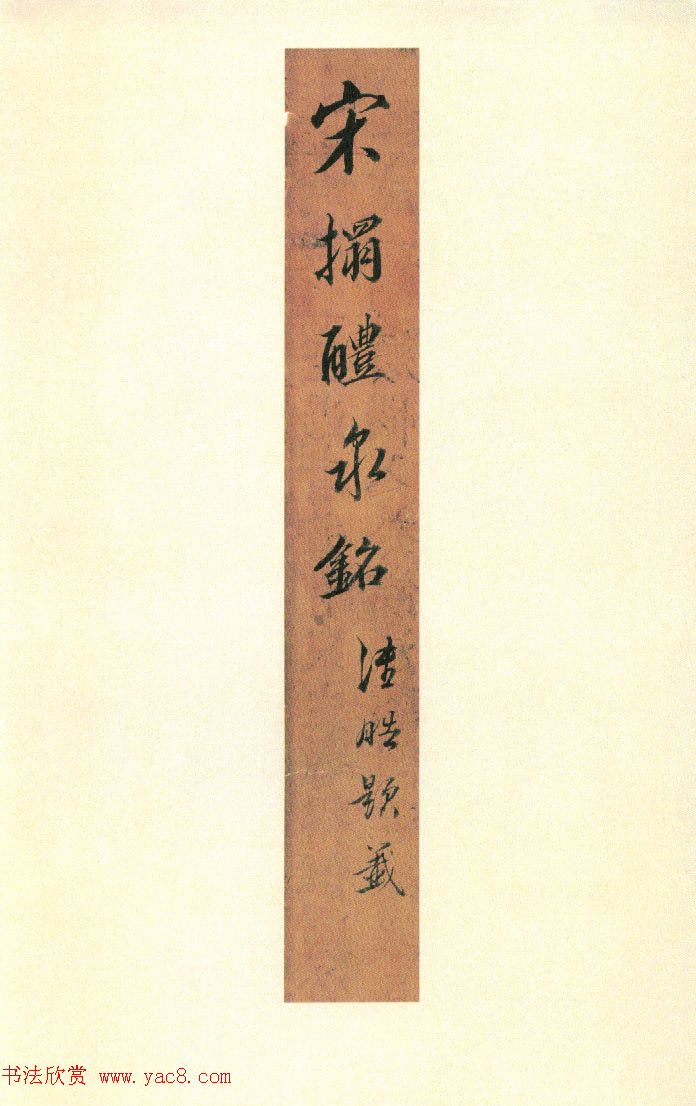 宋搨醴泉銘
題籤
书法欣赏 www.yac8.com